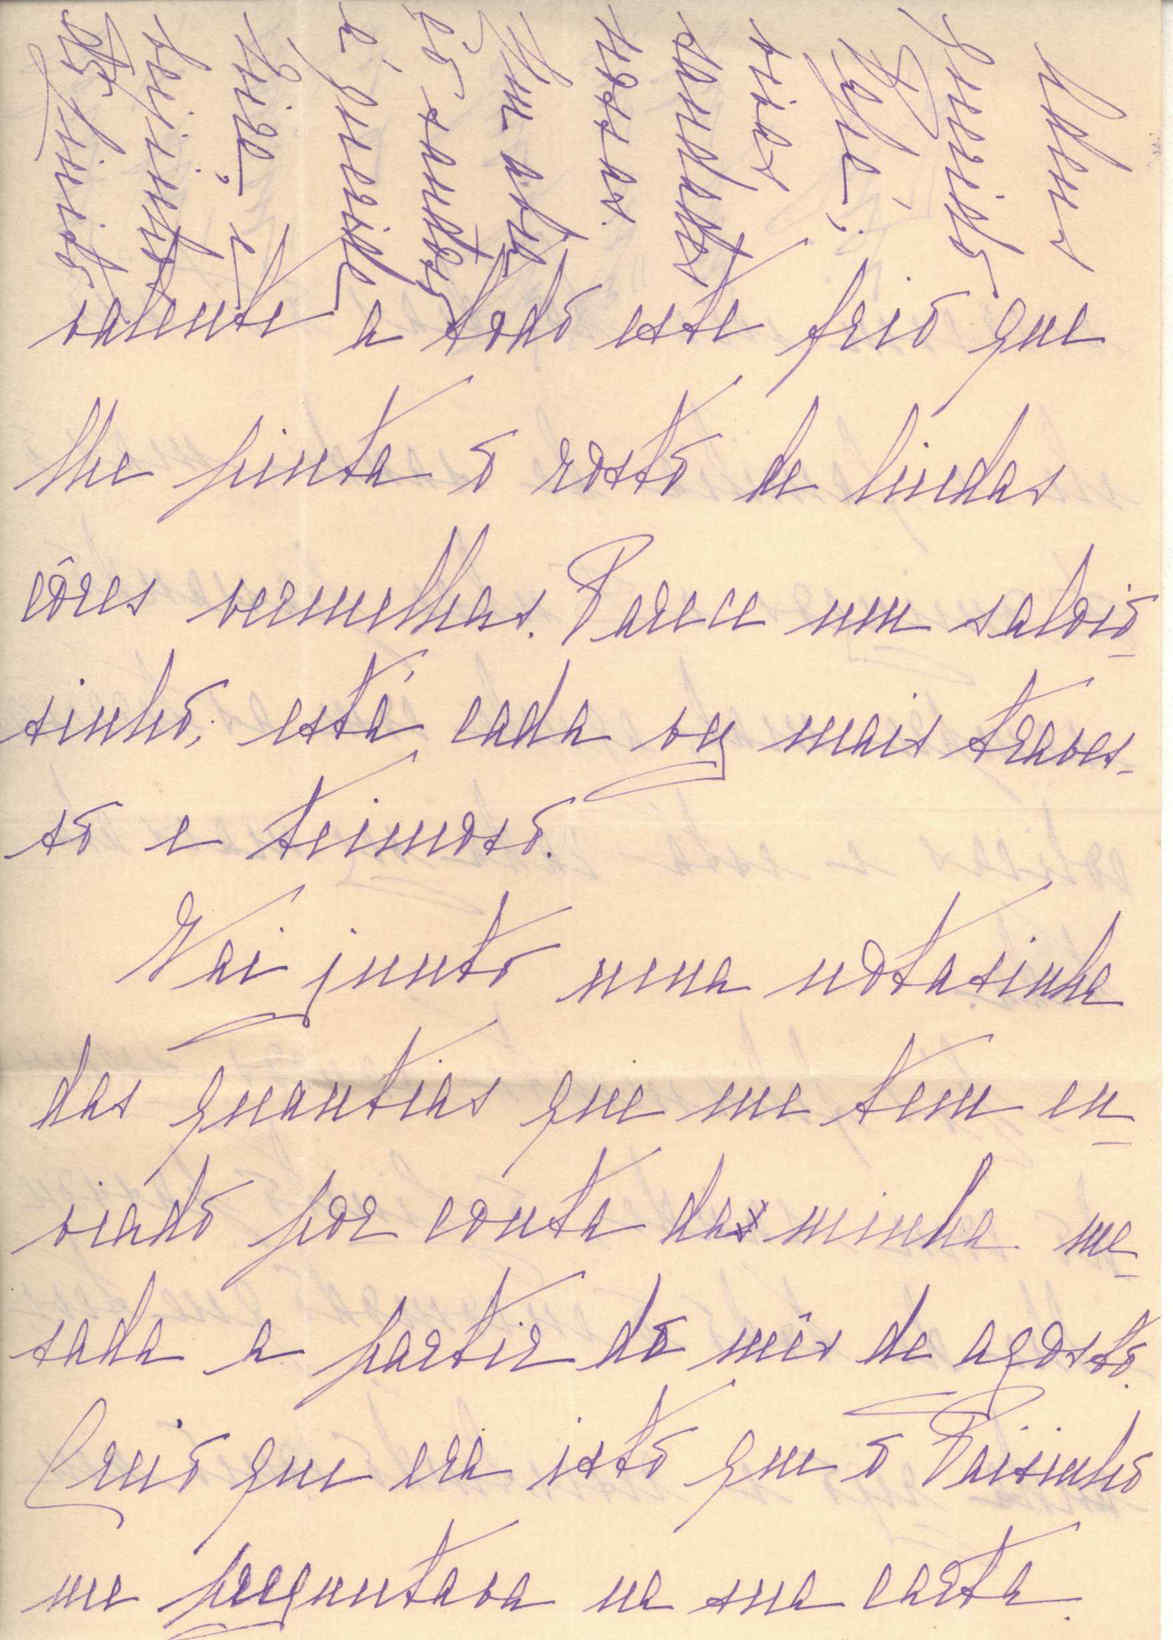 valente a todo este frio que
lhe pinta o rosto de lindas
côres vermelhas. Parece um saloio-
sinho; está cada vez mais traves-
so e teimoso.
Vai junto uma notasinha
das quantias que me tem en-
viado por conta da minha me-
sada a partir do mês de agosto.
Creio que era isto que o Paisinho
me preguntava na sua carta.
Adeus
querido
vivas
saudades
nossas.
Um
saudoso
é querida
e
beijinhos
do Quinito